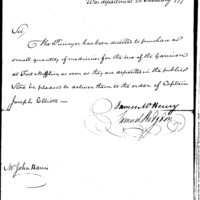 War department 22 January 179
Sir,
The Purveyor has been directed to purchase a
small quantity of medicines for the use of the Garrison
at Fort Mifflin as soon as they are deposited in the publick
Store be pleased to deliver them to the order of Captain
Joseph Elliott.
James McHenry
Samuel Hodgdon
Mr John Harris